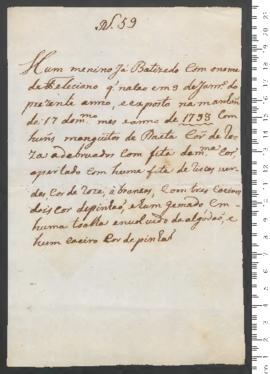 N.º 59
Hum menino Ja Batizado Com onome
de Feleciano q' naceo em 9 de Janr.º do
prezente anno, e exposto na manhãa
de 17 do m.mo mes e anno de 1798 Com
huñs manguitos de Baeta Cor de Ro
za adebruados com fita da m.ma Cor,
apertado com huma fita de riscos ver
des, Cor de Roza, e brancos, Com tres Coeiros
dois Cor de pinhaõ, e hum gemado Em
huma toalha envoluido de algodaõ, e
hum coeiro Cor de pinhaõ